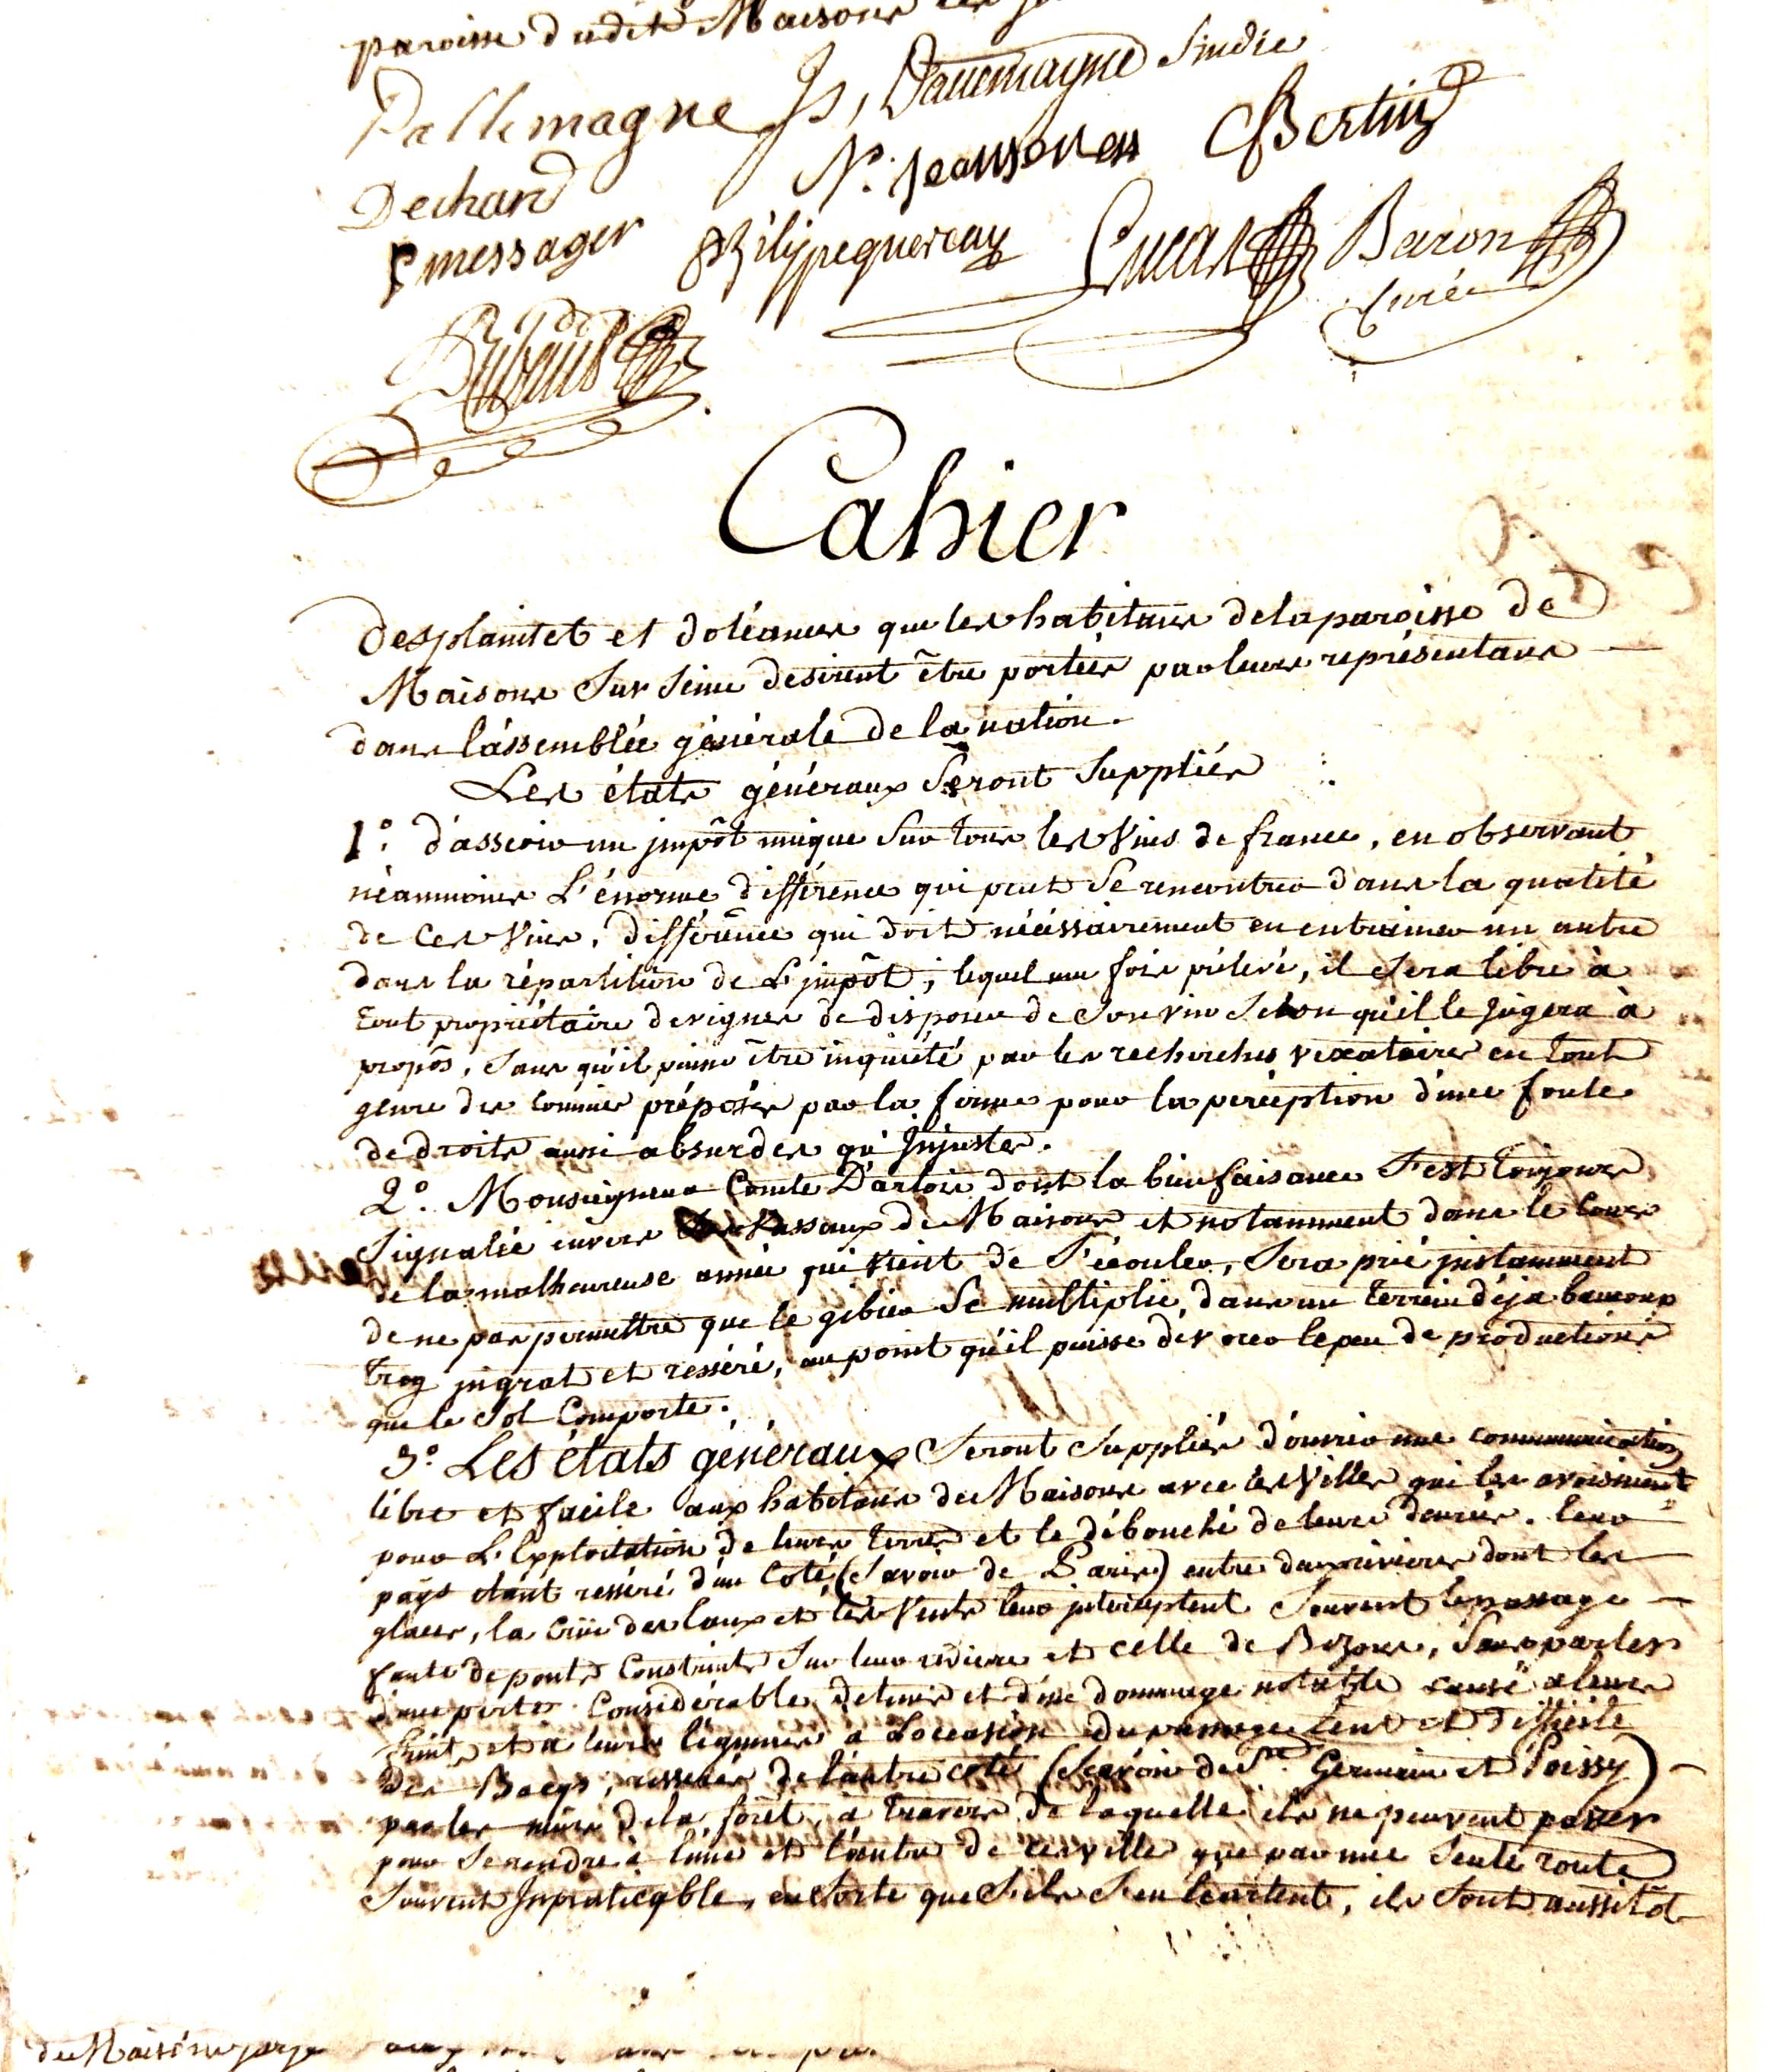 paroisse dudit Maisons les
Dallemagne Js, Dallemagne Sindic
Dechard N. Jeanson Bertin
P messager philippe quercay Lucas Baron
Curé
Cahier
Des plaintet et doléances que les habitans de la paroisse de
Maisons Sur Seine desirent être portées par leurs représentans
dans l'assemblée générale de la nation.
Les états généraux Seront Suppliés :
1º. d'asseoir un jmpôt unique Sur tous les Vins de france, en observant
néanmoins L'énorme différence qui peut Se rencontrer dans la qualité
de Ces Vins, différence qui doit nécéssairement en entrainer un autre
dans la répartition de L'jmpôt; lequel une fois prélevé, il Sera libre à
tout propriétaire de vignes de disposer de Son vin Selon qu'il le jugera à
propôs, Sans qu'il puisse être inquiété par les recherches vexatoires en tout
genre des Commis préposés par la ferme pour la perception d'une foule
de droits aussi absurdes qu'Injustes.
2º. Monseigneur Comte D'artois dont la bienfaisance S'est toujours
Signalée envers Ses Vassaux de Maisons et notamment dans le Cours
de la malheureuse année qui vient de S'écouler, Sera prié jnstamment
de ne pas permettre que le gibier Se multiplie, dans un terrein déja beaucoup
trop jngrat et resséré, au point qu'il puisse dévorer le peu de productions
que le Sol Comporte.
3º Les états généraux Seront Suppliés d'ouvrir une communication
libre et facile aux habitans de Maisons avec les Villes qui les avoisinent
pour L'Exploitation de leurs terres et le débouché de leurs denrées. leur
pays étant resséré d'un Coté (Savoir de Paris) entre deux rivieres dont les
glaces, la Crüe des Eaux et les Vents leur jnterceptent Souvent le passage
faute de ponts Construits Sur leur riviere et celle de Bezons, Sans parler
d'une perte Considérable de tems et d'un dommage notable causé a leurs
fruits et a leurs légumes a L'occasion du passage lent et difficile
Des Bacqs; ressérés de l'autre coté (Scavoir de St. Germain et Poissy)
par les murs de la forêt, à travers de laquelle ils ne peuvent passer
pour Se rendre à l'une et l'autre de ces ville que par une Seule route
Souvent Inpraticable, en Sorte que S'ils S'en écartent, ils Sont aussitôt